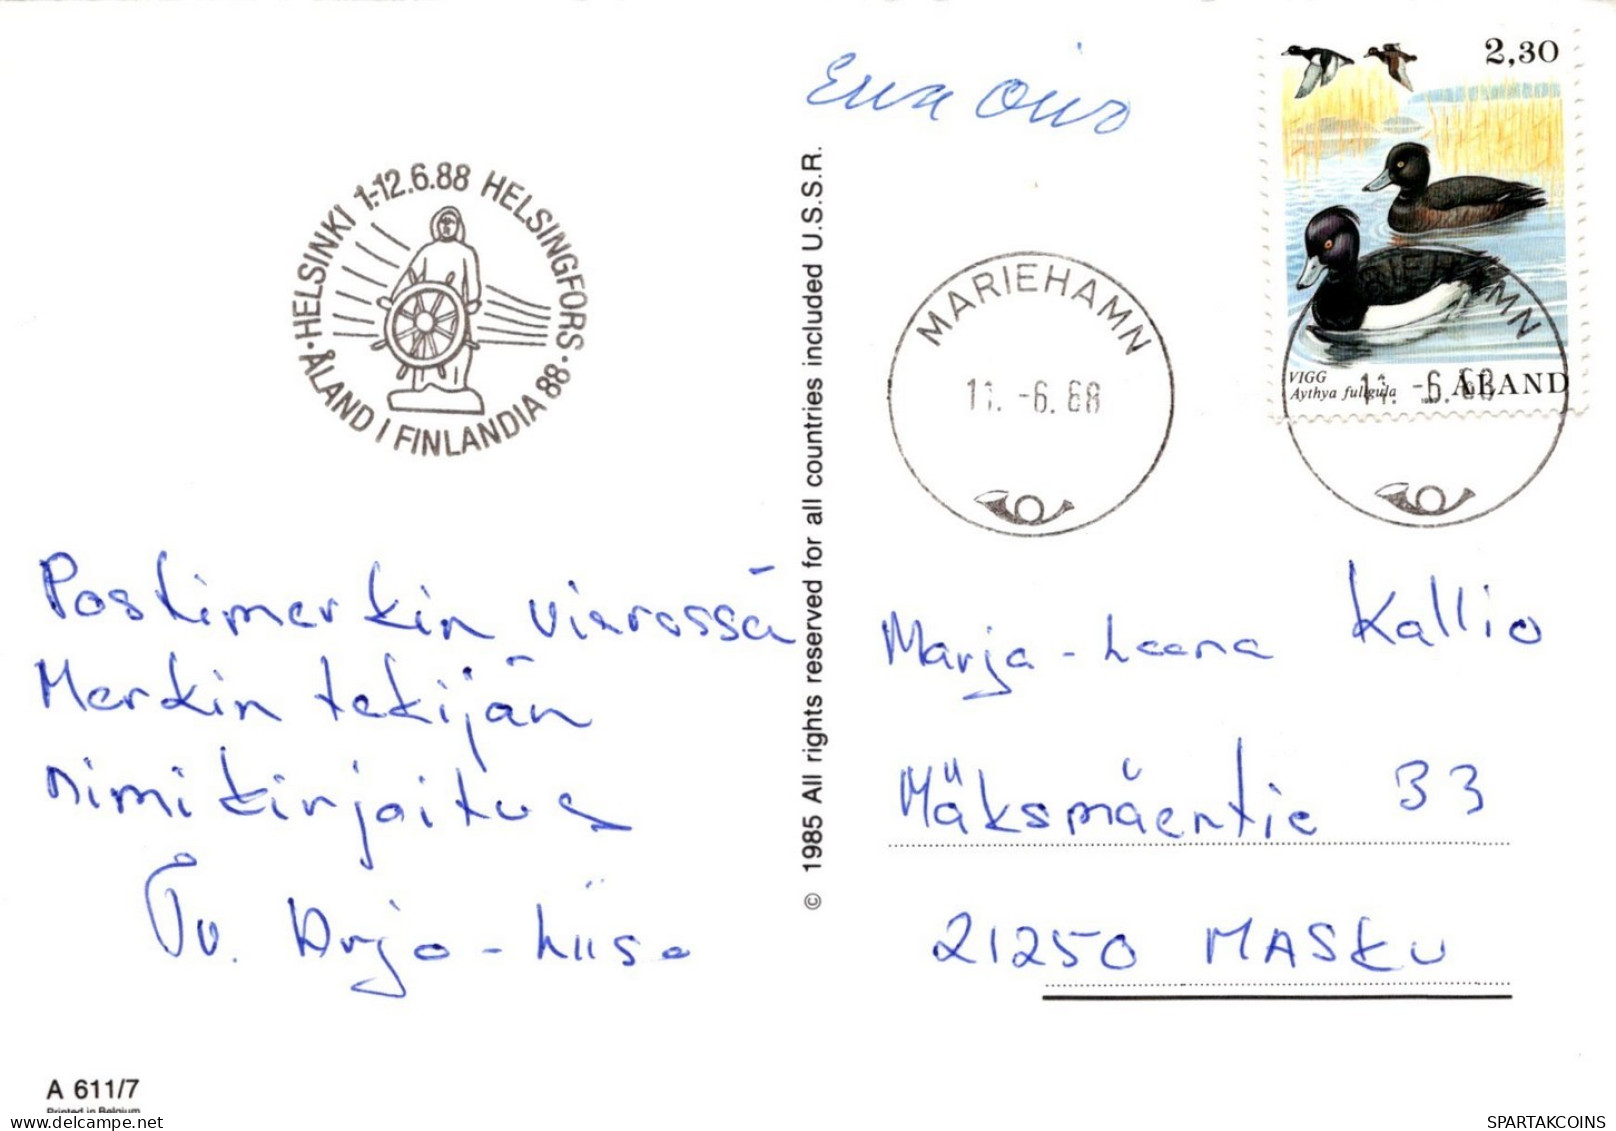 Eua Oivo
2,30
HELSINKI 1.-12.6.88 HELSINGFORS
· ÅLAND I FINLANDIA 88 ·
MARIEHAMN
11. -6. 88
MARIEHAMN
11. -6. 88
VIGG
Aythya fuligula
ÅLAND
© 1985 All rights reserved for all countries included U.S.S.R.
Postimerkin vieressä
Merkin tekijän
nimikirjoitus
Tv. Arja-Liisa
Marja-Leena Kallio
Mäksmäentie 33
21250 MASKU
A 611/7
Printed in Belgium
SPARTAKCOINS